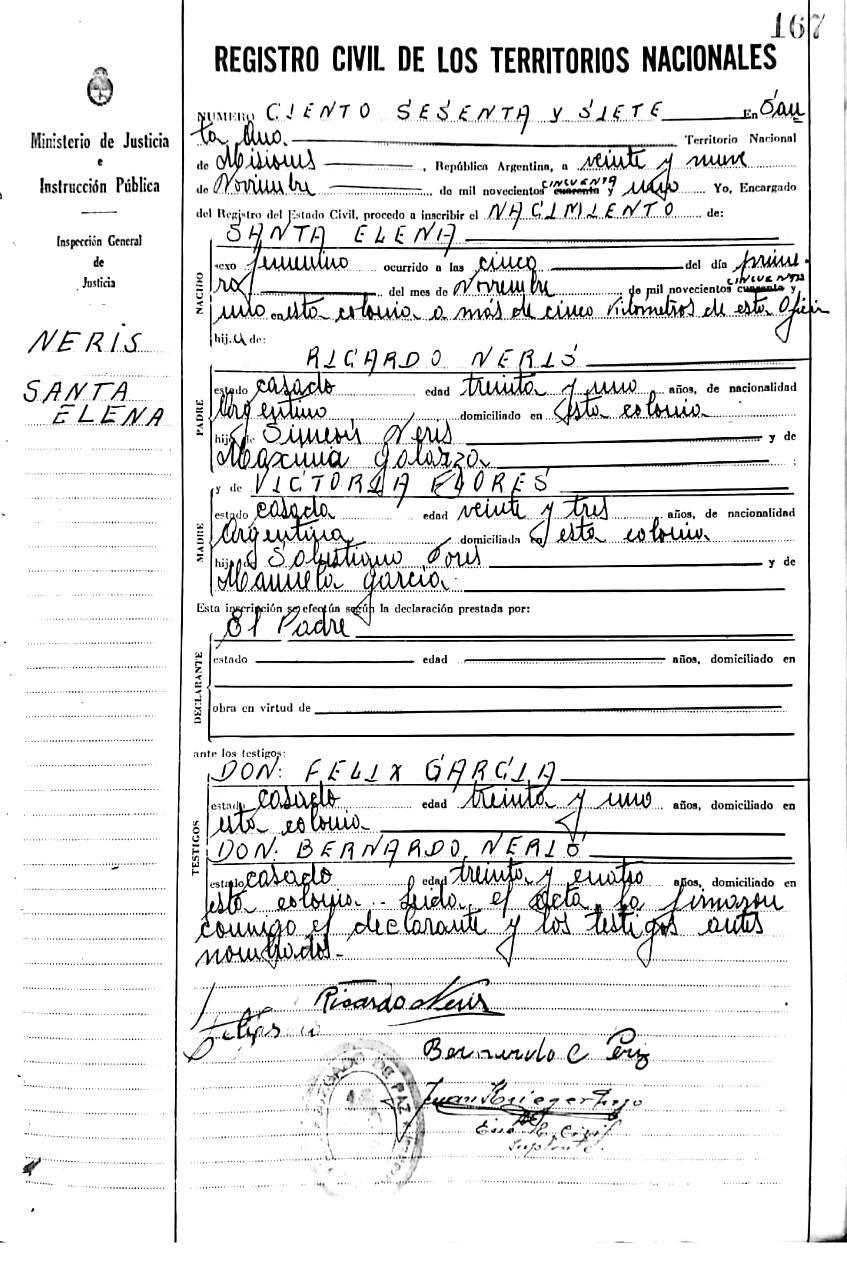 167
REGISTRO CIVIL DE LOS TERRITORIOS NACIONALES
Ministerio de Justicia
e
Instrucción Pública
Inspección General
de
Justicia
NERIS
SANTA
ELENA
NUMERO CIENTO SESENTA y SIETE En San
ta Ana. Territorio Nacional
de Misiones, República Argentina, a veinte y nueve
de Noviembre de mil novecientos cuarenta CINCUENTA y uno Yo, Encargado
del Registro del Estado Civil, procedo a inscribir el NACIMIENTO de:
SANTA ELENA
NACIDO
sexo femenino ocurrido a las cinco del día prime-
ro del mes de Noviembre de mil novecientos cuarenta CINCUENTA y
uno en esta colonia a más de cinco Kilometros de esta Ofici
hij.a de:
RICARDO NERIS
PADRE
estado casado edad treinta y uno años, de nacionalidad
Argentino domiciliado en esta colonia
hijo de Simeón Neris y de
Maxima Galarza
y de VICTORIA FLORES
MADRE
estado casada edad veinte y tres años, de nacionalidad
Argentina domiciliada en esta colonia
hija de Salustiano y de
Manuela Garcia
Esta inscripción se efectúa según la declaración prestada por:
El Padre
DECLARANTE
estado edad años, domiciliado en
obra en virtud de
ante los testigos:
DON: FELIX GARCIA
TESTIGOS
estado casado edad treinta y uno años, domiciliado en
esta colonia
DON: BERNARDO NERIS
estado casado edad treinta y cuatro años, domiciliado en
esta colonia.- Leida el acta, la firmaron
conmigo el declarante y los testigos antes
nombrados.-
Ricardo Neris
Bernardo C
JUZGADO DE PAZ
Juan Krieger
Suplente